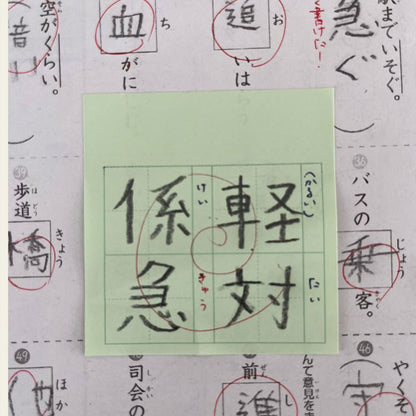 までいそぐ。
急ぐ
く書けた!
追いは
お
血がに
ち
空がくらい。
(かるい)
軽対
たい
係急
けい
きゅう
バスの乗客。
じょう
39
歩道橋
ほどう きょう
46
やくそ
守
んで意見を
前進
しん
司会の
しかい
49
ほか